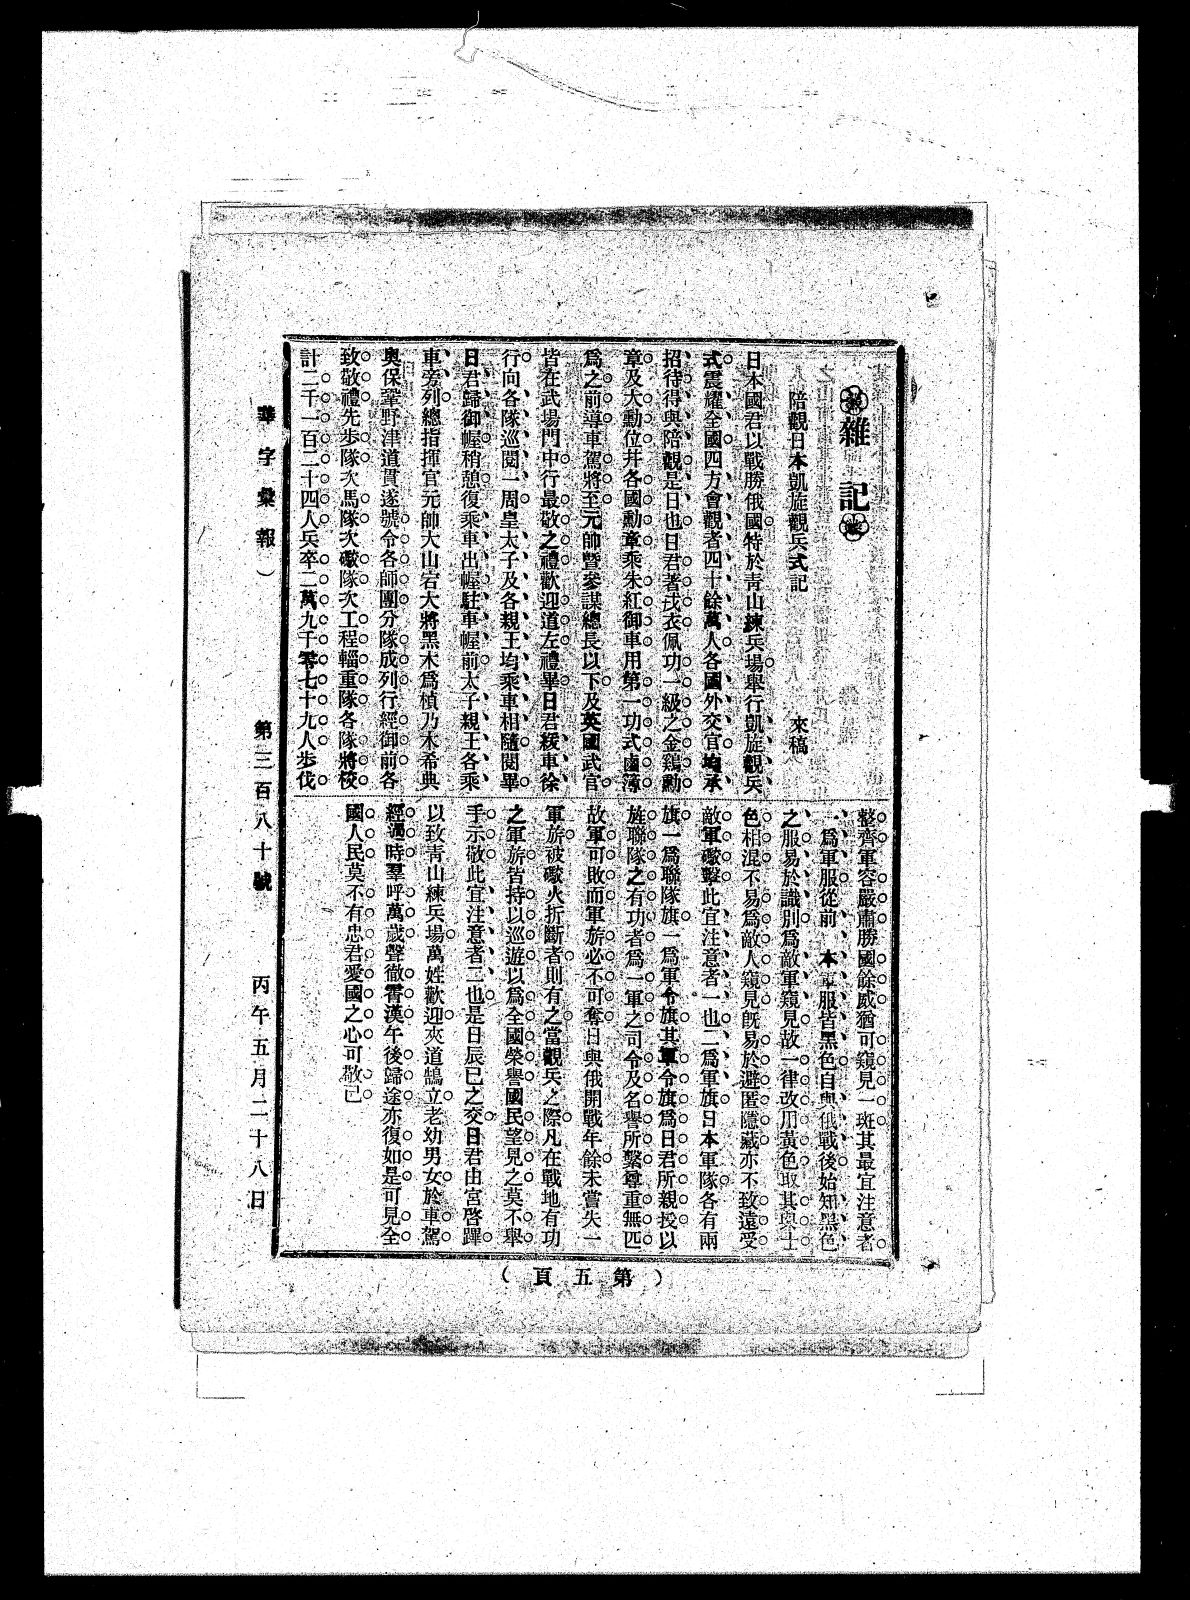 雜記
陪觀日本凱旋觀兵式記　來稿
日本國君以戰勝俄國特於靑山練兵場舉行凱旋觀兵
式震耀全國四方會觀者四十餘萬人各國外交官均承
招待得與陪觀是日也日君著戎衣佩功一級之金鵄勳
章及大勳位幷各國勳章乘朱紅御車用第一功式鹵薄
爲之前導車駕將至元帥曁參謀總長以下及英國武官
皆在武場門中行最敬之禮歡迎道左禮畢日君緩車徐
行向各隊巡閱一周皇太子及各親王均乘車相隨閱畢
日君歸御幄稍憩復乘車出幄駐車幄前太子親王各乘
車旁列總指揮官元帥大山岩大將黑木爲楨乃木希典
奧保鞏野津道貫遂號令各師團分隊成列行經御前各
致敬禮先步隊次馬隊次礮隊次工程輜重隊各隊將校
計二千一百二十四人兵卒二萬九千零七十九人步伐
整齊軍容嚴肅勝國餘威猶可窺見一斑其最宜注意者
一爲軍服從前　本軍服皆黑色自與俄戰後始知黑色
之服易於識別爲敵軍窺見故一律改用黃色取其與士
色相混不易爲敵人窺見旣易於避匿隱藏亦不致遠受
敵軍礮擊此宜注意者一也二爲軍旗日本軍隊各有兩
旗一爲聯隊旗一爲軍令旗其軍令旗爲日君所親授以
旌聯隊之有功者爲一軍之司令及名譽所繫尊重無匹
故軍可敗而軍旂必不可奪日與俄開戰年餘未嘗失一
軍旂被礮火折斷者則有之當觀兵之際凡在戰地有功
之軍旂皆持以巡遊以爲全國榮譽國民望見之莫不舉
手示敬此宜注意者二也是日辰巳之交日君由宮啓蹕
以致靑山練兵場萬姓歡迎夾道鵠立老幼男女於車駕
經過時羣呼萬歲聲徹霄漢午後歸途亦復如是可見全
國人民莫不有忠君愛國之心可敬已
華字彙報）　第三百八十號　丙午五月二十八日
（第五頁）